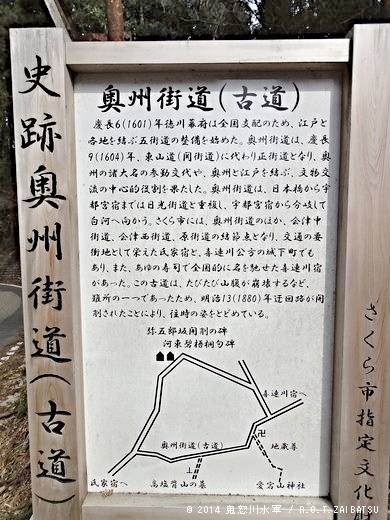 史跡奥州街道(古道)
奥州街道(古道)
慶長6(1601)年徳川幕府は全国支配のため、江戸と
各地を結ぶ五街道の整備を始めた。奥州街道は、慶長
9(1604)年、東山道(関街道)に代わり正街道となり、奥
州の諸大名の参勤交代や、奥州と江戸を結ぶ、文物交
流の中心的役割を果たした。奥州街道は、日本橋から宇
都宮宿までは日光街道と重複し、宇都宮宿から分岐して
白河へ向かう。さくら市には、奥州街道のほか、会津中
街道、会津西街道、原街道の結節点となり、交通の要
衝地として栄えた氏家宿と、喜連川公方の城下町でも
あり、また、あゆの寿司で全国的に名を馳せた喜連川宿
があった。この古道は、たびたび山腹が崩壊するなど、
難所の一つであったため、明治13(1880)年迂回路が開
削されたことにより、往時の姿をとどめている。
弥五郎坂開削の碑
河東碧梧桐句碑
喜連川宿へ
奥州街道(古道)
卍
地蔵尊
氏家宿へ
高塩背山の墓
愛宕山神社
さくら市指定文化財
© 2014 鬼怒川水軍 / R.O.T.ZAIBATSU